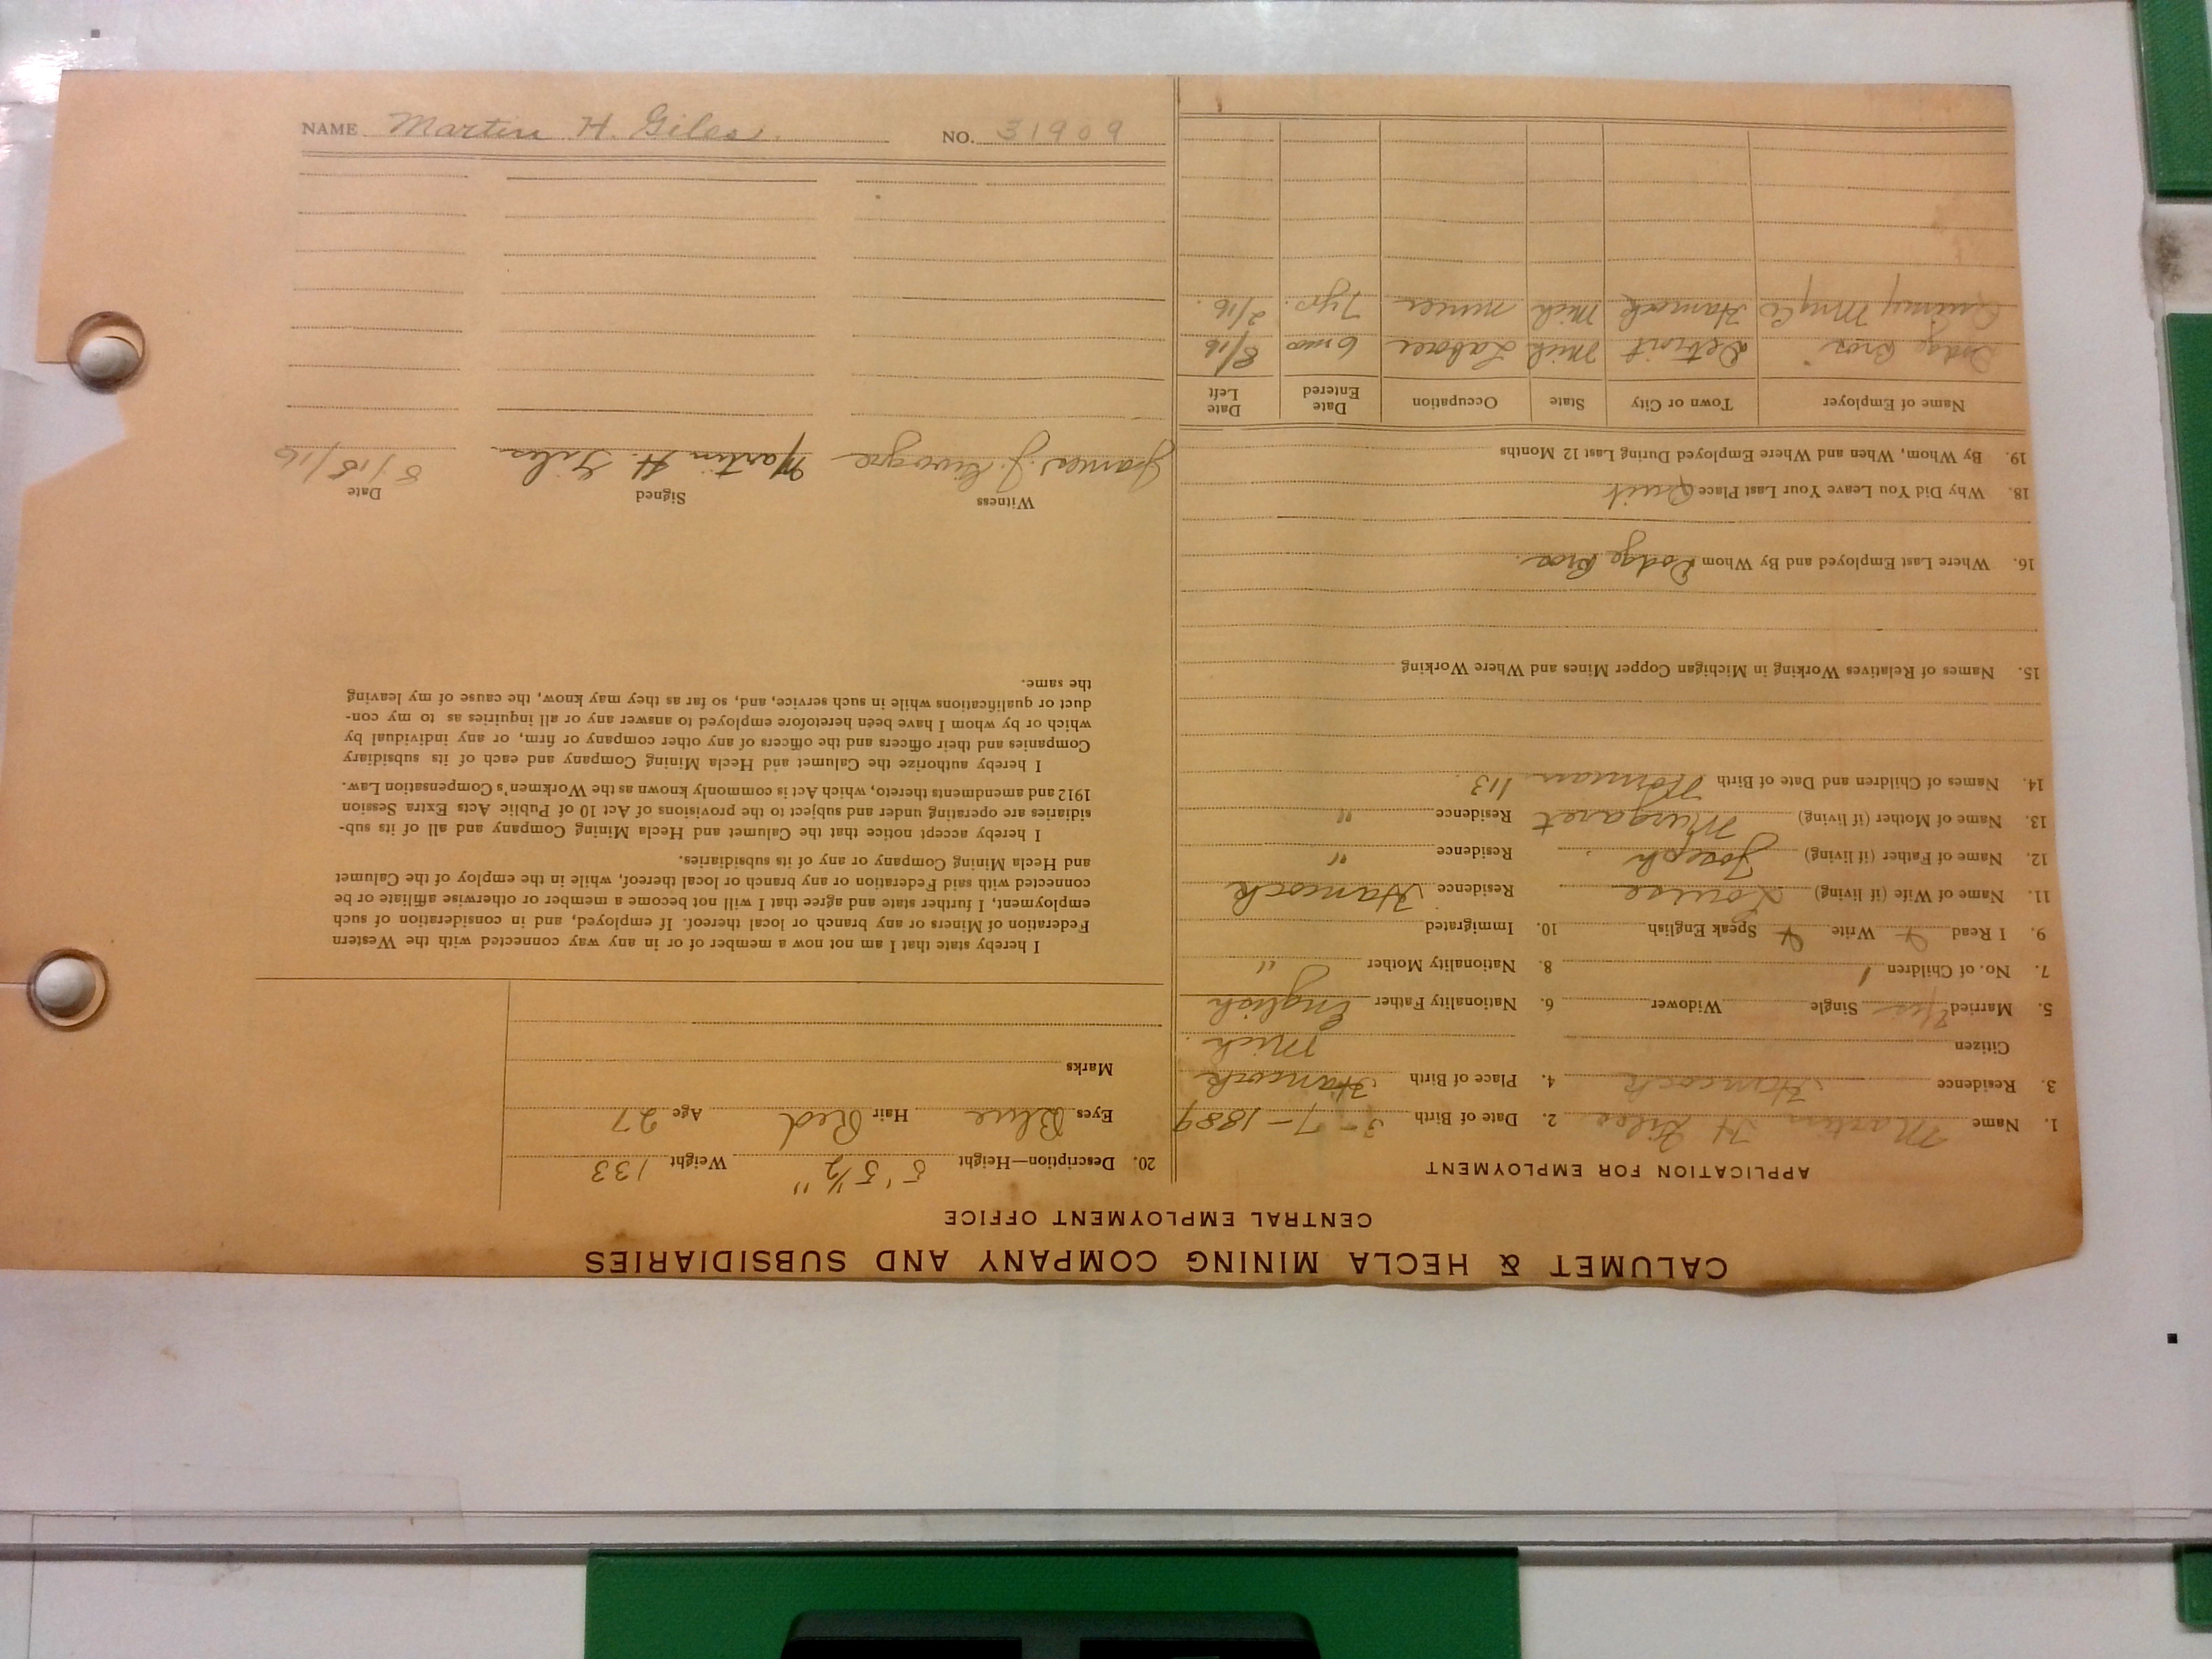 NAME Martin H. Giles. NO. 31909
CALUMET & HECLA MINING COMPANY AND SUBSIDIARIES
CENTRAL EMPLOYMENT OFFICE
APPLICATION FOR EMPLOYMENT
1. Name Martin H Giles 2. Date of Birth 3-7-1889
3. Residence Hancock 4. Place of Birth Hancock
Citizen Mich.
5. Married Yes Single Widower 6. Nationality Father English
7. No. of Children 1 8. Nationality Mother "
9. I Read Write Speak English 10. Immigrated
11. Name of Wife (if living) Louise Residence Hancock
12. Name of Father (if living) Joseph Residence "
13. Name of Mother (if living) Margaret Residence "
14. Names of Children and Date of Birth Norman 1/13.
15. Names of Relatives Working in Michigan Copper Mines and Where Working
16. Where Last Employed and By Whom Dodge Bros.
18. Why Did You Leave Your Last Place Quit
19. By Whom, When and Where Employed During Last 12 Months
Name of Employer Town or City State Occupation Date Entered Date Left
Dodge Bros Detroit Mich Laborer 6 mo 8/16
Quincy Mng Co Hancock Mich miner 7 yrs. 2/16.
20. Description—Height 5' 5 1/2" Weight 133
Eyes Blue Hair Red Age 27
Marks
I hereby state that I am not now a member of or in any way connected with the Western
Federation of Miners or any branch or local thereof. If employed, and in consideration of such
employment, I further state and agree that I will not become a member or otherwise affiliate or be
connected with said Federation or any branch or local thereof, while in the employ of the Calumet
and Hecla Mining Company or any of its subsidiaries.
I hereby accept notice that the Calumet and Hecla Mining Company and all of its sub-
sidiaries are operating under and subject to the provisions of Act 10 of Public Acts Extra Session
1912 and amendments thereto, which Act is commonly known as the Workmen's Compensation Law.
I hereby authorize the Calumet and Hecla Mining Company and each of its subsidiary
Companies and their officers and the officers of any other company or firm, or any individual by
which or by whom I have been heretofore employed to answer any or all inquiries as to my con-
duct or qualifications while in such service, and, so far as they may know, the cause of my leaving
the same.
Witness Signed Date
James J. Martin H. Giles 8/18/16